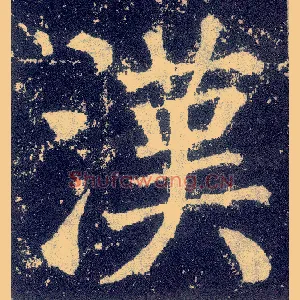 漢
Shufawang.CN